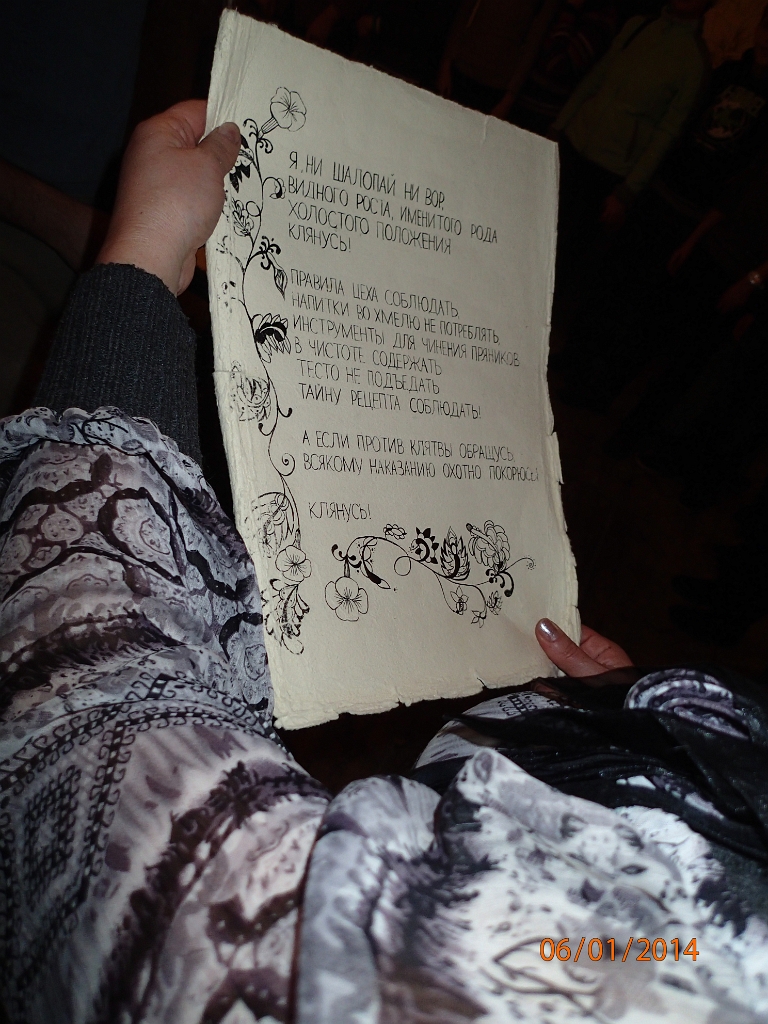 Я, НИ ШАЛОПАЙ НИ ВОР,
ВИДНОГО РОСТА, ИМЕНИТОГО РОДА
ХОЛОСТОГО ПОЛОЖЕНИЯ
КЛЯНУСЬ!
ПРАВИЛА ЦЕХА СОБЛЮДАТЬ,
НАПИТКИ ВО ХМЕЛЮ НЕ ПОТРЕБЛЯТЬ,
ИНСТРУМЕНТЫ ДЛЯ ЧИНЕНИЯ ПРЯНИКОВ
В ЧИСТОТЕ СОДЕРЖАТЬ
ТЕСТО НЕ ПОДЪЕДАТЬ
ТАЙНУ РЕЦЕПТА СОБЛЮДАТЬ!
А ЕСЛИ ПРОТИВ КЛЯТВЫ ОБРАЩУСЬ,
ВСЯКОМУ НАКАЗАНИЮ ОХОТНО ПОКОРЮСЬ!
КЛЯНУСЬ!
06/01/2014